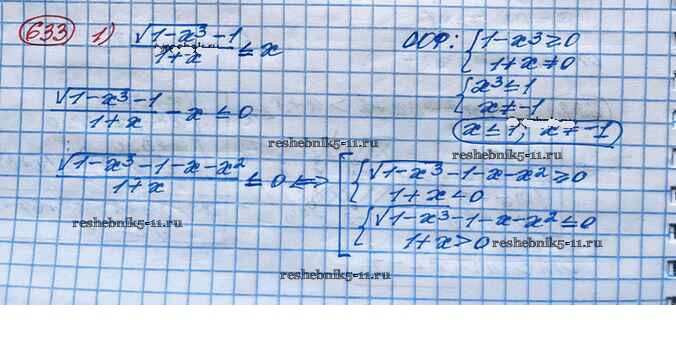 633 1) (√(1-x³) - 1)/(1+x) ≤ x
ООФ: { 1-x³ ≥ 0
1+x ≠ 0
{ x³ ≤ 1
x ≠ -1
x ≤ 1; x ≠ -1
(√(1-x³) - 1)/(1+x) - x ≤ 0
reshebnik5-11.ru
reshebnik5-11.ru
(√(1-x³) - 1 - x - x²)/(1+x) ≤ 0 <=> [ { √(1-x³) - 1 - x - x² ≥ 0
1+x < 0
{ √(1-x³) - 1 - x - x² ≤ 0
1+x > 0
reshebnik5-11.ru
reshebnik5-11.ru
reshebnik5-11.ru